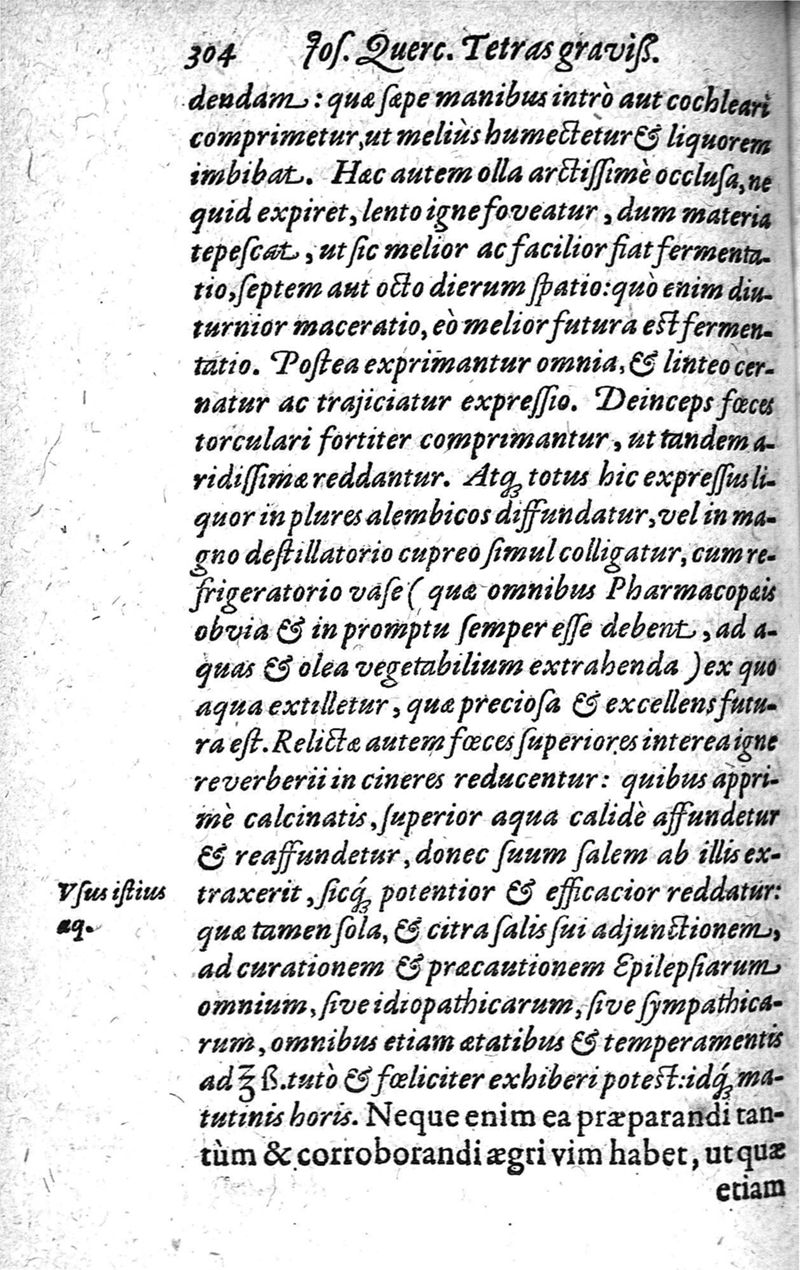 304 Joſ. Querc. Tetras graviß.
dendam: quæ ſæpe manibus intrò aut cochleari
comprimetur, ut meliùs humectetur & liquorem
imbibat. Hæc autem olla arctiſſimè occluſa, ne
quid expiret, lento igne foveatur, dum materia
tepeſcat, ut ſic melior ac facilior fiat fermenta-
tio, ſeptem aut octo dierum ſpatio: quò enim diu-
turnior maceratio, eò melior futura eſt fermen-
tatio. Poſtea exprimantur omnia, & linteo cer-
natur ac trajiciatur expreſſio. Deinceps fœces
torculari fortiter comprimantur, ut tandem a-
ridiſſimæ reddantur. Atq́ꝫ totus hic expreſſus li-
quor in plures alembicos diffundatur, vel in ma-
gno deſtillatorio cupreo ſimul colligatur, cum re-
frigeratorio vaſe ( quæ omnibus Pharmacopæis
obvia & in promptu ſemper eſſe debent, ad a-
quas & olea vegetabilium extrahenda ) ex quo
aqua extilletur, quæ precioſa & excellens futu-
ra eſt. Relictæ autem fœces ſuperiores interea igne
reverberii in cineres reducentur: quibus appri-
mè calcinatis, ſuperior aqua calidè affundetur
& reaffundetur, donec ſuum ſalem ab illis ex-
Vſus iſtius
aq.
traxerit, ſicq́ꝫ potentior & efficacior reddatur:
quæ tamen ſola, & citra ſalis ſui adjunctionem,
ad curationem & præcautionem Epilepſiarum
omnium, ſive idiopathicarum, ſive ſympathica-
rum, omnibus etiam ætatibus & temperamentis
ad ℥ ß. tutò & fœliciter exhiberi poteſt: idq́ꝫ ma-
tutinis horis. Neque enim ea præparandi tan-
tùm & corroborandi ægri vim habet, ut quæ
etiam